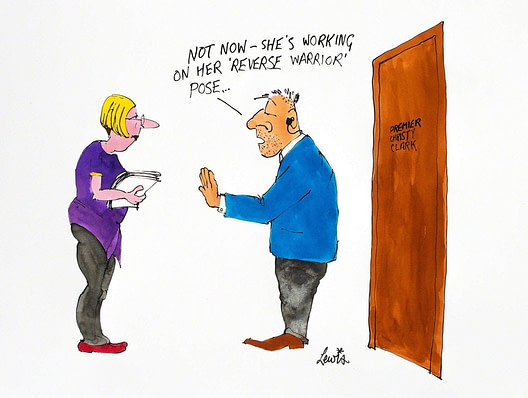 NOT NOW – SHE'S WORKING
ON HER 'REVERSE WARRIOR'
POSE...
PREMIER
CHRISTY
CLARK
Lewis